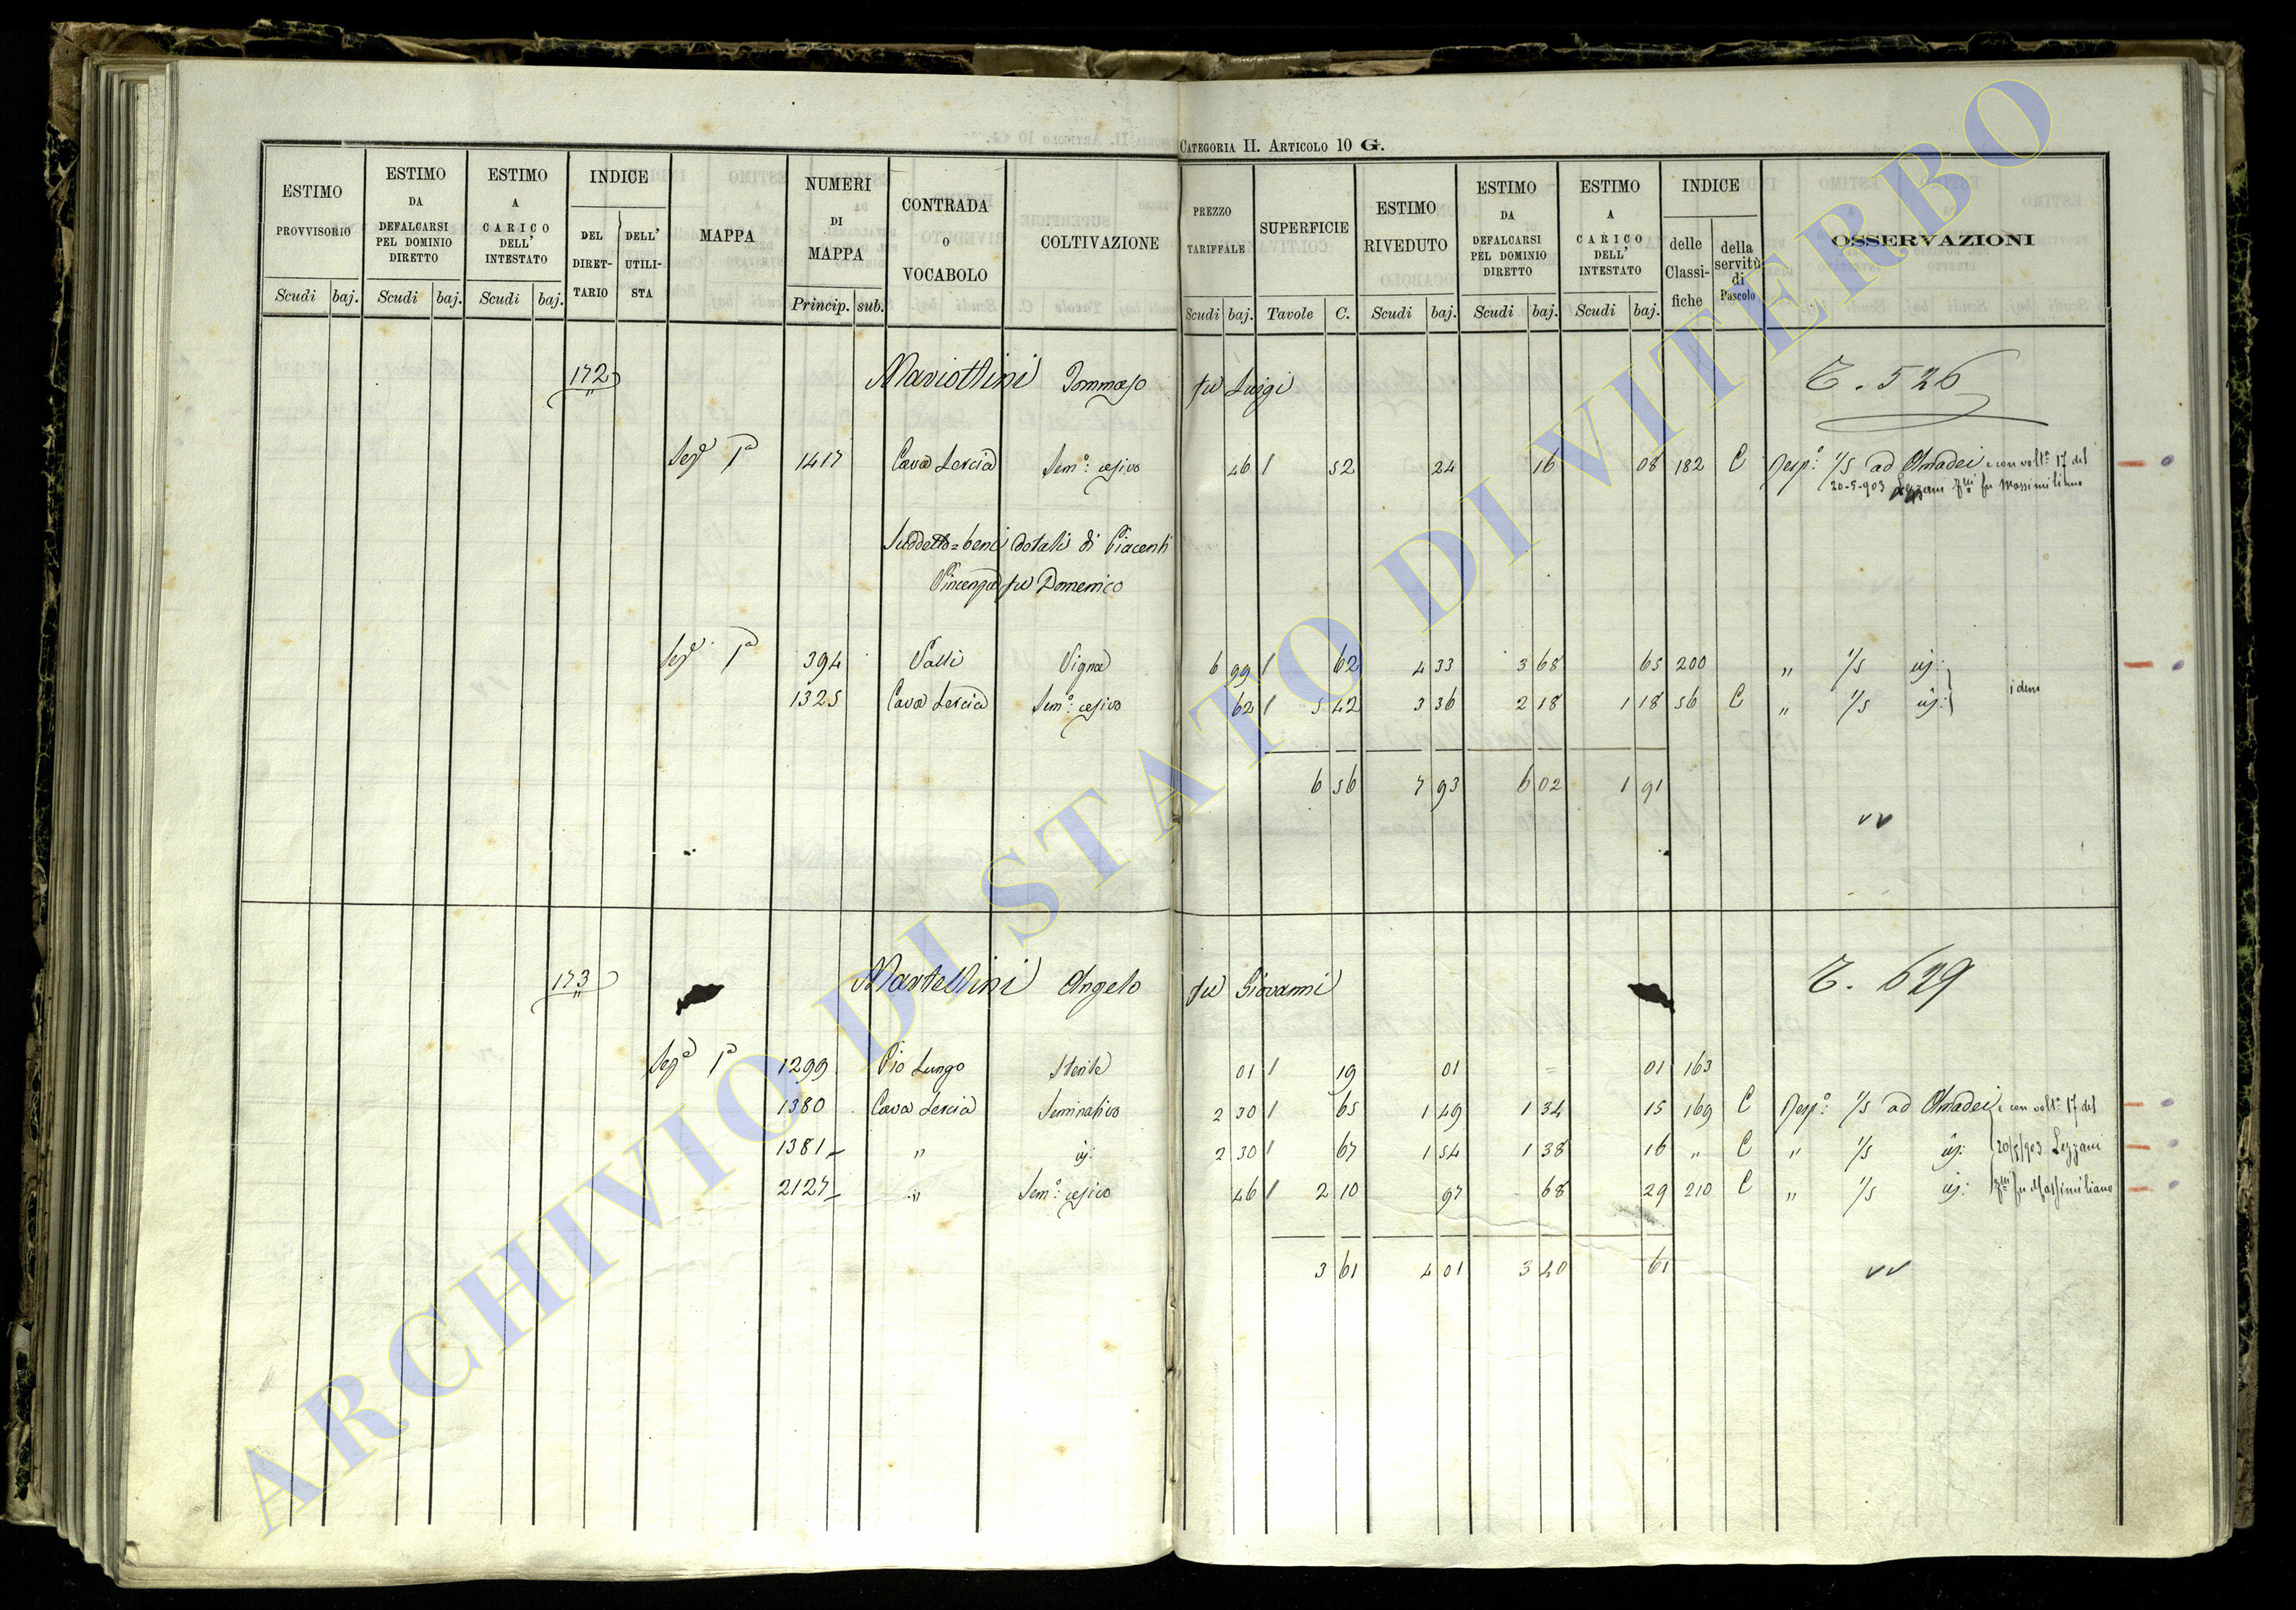 CATEGORIA II. ARTICOLO 10 G.
ESTIMO PROVVISORIO Scudi baj. ESTIMO DA DEFALCARSI PEL DOMINIO DIRETTO Scudi baj. ESTIMO A CARICO DELL' INTESTATO Scudi baj. INDICE DEL DIRETTARIO DELL' UTILISTA MAPPA NUMERI DI MAPPA Princip. sub. CONTRADA O VOCABOLO COLTIVAZIONE PREZZO TARIFFALE Scudi baj. SUPERFICIE Tavole C. ESTIMO RIVEDUTO Scudi baj. ESTIMO DA DEFALCARSI PEL DOMINIO DIRETTO Scudi baj. ESTIMO A CARICO DELL' INTESTATO Scudi baj. INDICE delle Classifiche della servitù di Pascolo OSSERVAZIONI
172 Mariottini Tommaso fu Luigi 526
1417 Cava Lescia Sem.º cesivo 46 / 52 24 16 08 182 C Resp.º 1/5 ad Amadei e con volt.ª 17 del
20-5-903 Lezzani fu Massimiliano
Suddetto = beni dotali di Piacenti
Vincenza fu Domenico
394 Valli Vigna 6 99 / 62 4 33 3 68 65 200 " 1/5 idem
1325 Cava Lescia Sem.º cesivo 62 / 5 42 3 36 2 18 1 18 56 C " 1/5
6 56 7 93 6 02 1 91
173 Martellini Angelo fu Giovanni 629
1299 Pio Lungo Sterile 01 / 19 01 = 01 163
1380 Cava Lescia Seminativo 2 30 / 65 1 49 1 34 15 169 C Resp.º 1/5 ad Amadei e con volt.ª 17 del
1381 " 2 30 / 67 1 54 1 38 16 " C " 1/5 20/5/903 Lezzani
2127 " Sem.º cesivo 46 / 2 10 97 68 29 210 C " 1/5 fu Massimiliano
3 61 4 01 3 40 61
ARCHIVIO DI STATO DI VITERBO